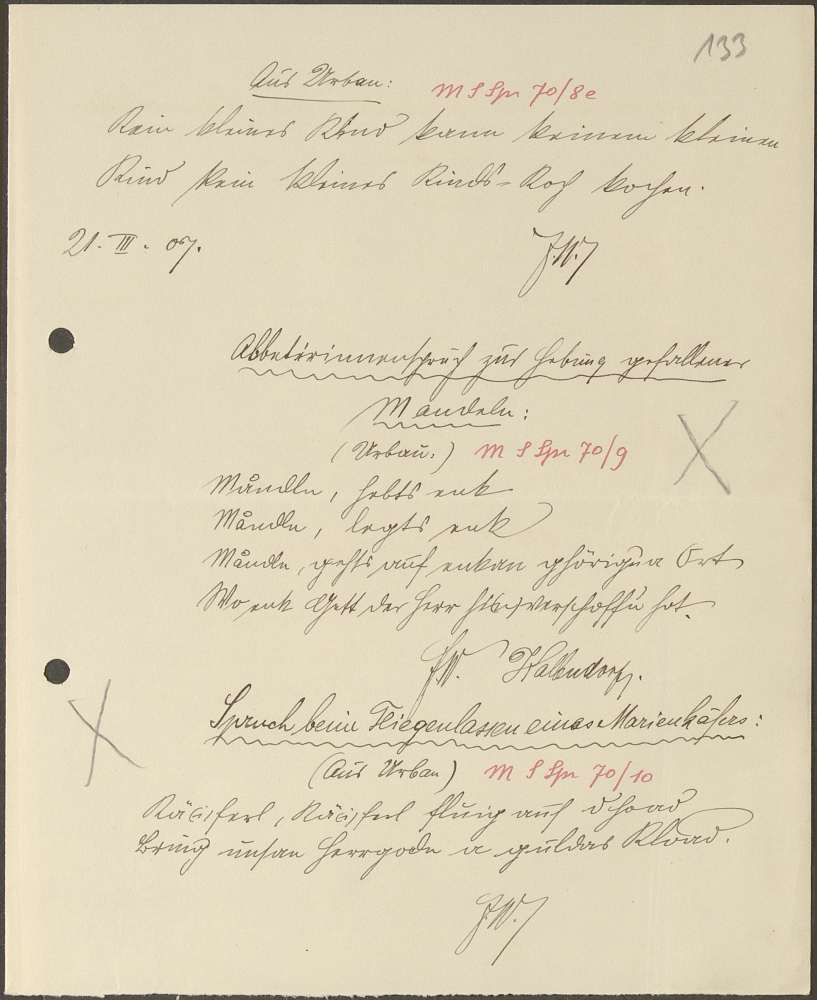 133
Aus Urban:
M S Spr 70/8e
Kein kleines Kind kann keinem kleinen
Kind kein kleines Rinds-Koch kochen.
21. III. 07.
J.W.
Abbeterinnenspruch zur Hebung gefallener
Mandeln:
(Urbau:) M S Spr 70/9
Måndln, hebts enk
Måndln, legts enk
Måndln, gehts auf enkan ghörigen Ort
Wo enk Gott der Herr hi(n)verschaffn hot.
J.W. Kallendorf.
Spruch beim Fliegenlassen eines Marienkäfers:
(Aus Urbau) M S Spr 70/10
Kä(i)ferl, Kä(i)ferl fluig auf d'hoad
Bring unsan Herrgodn a guldas Kload.
J.W.